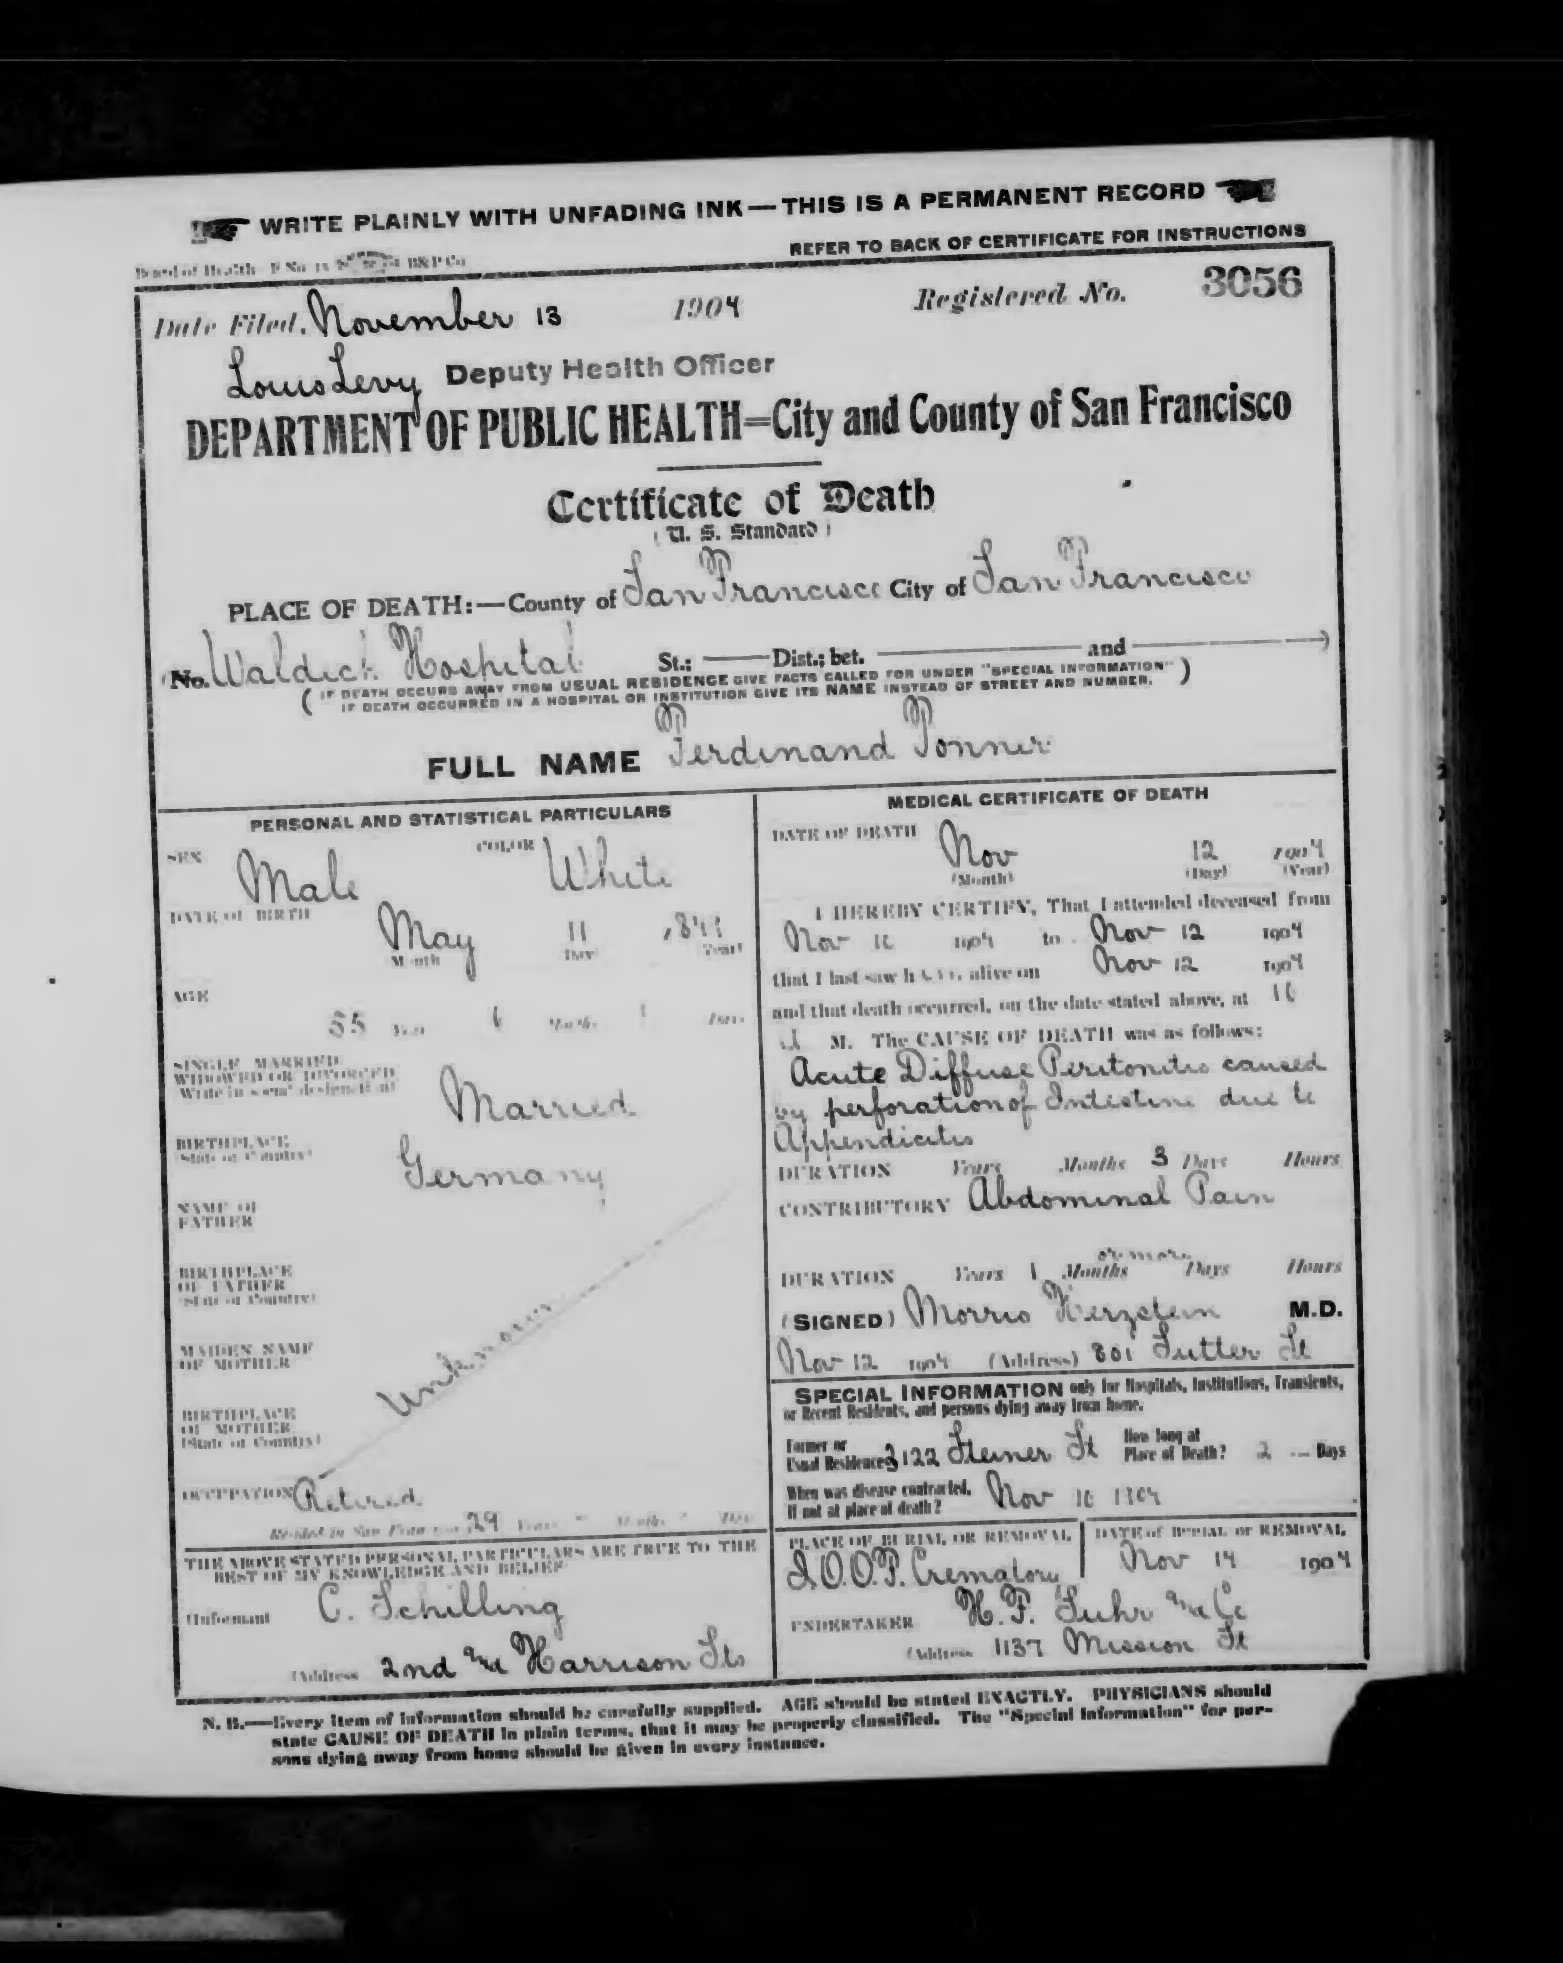 WRITE PLAINLY WITH UNFADING INK—THIS IS A PERMANENT RECORD
REFER TO BACK OF CERTIFICATE FOR INSTRUCTIONS
Board of Health B&P Co
Date Filed, November 13 1904 Registered No. 3056
Louis Levy Deputy Health Officer
DEPARTMENT OF PUBLIC HEALTH=City and County of San Francisco
Certificate of Death
(U. S. Standard)
PLACE OF DEATH:—County of San Francisco City of San Francisco
No. Waldeck Hospital St.; Dist.; bet. and
(IF DEATH OCCURS AWAY FROM USUAL RESIDENCE GIVE FACTS CALLED FOR UNDER "SPECIAL INFORMATION"
IF DEATH OCCURRED IN A HOSPITAL OR INSTITUTION GIVE ITS NAME INSTEAD OF STREET AND NUMBER.)
FULL NAME Ferdinand
PERSONAL AND STATISTICAL PARTICULARS
SEX Male COLOR White
DATE OF BIRTH May 11
Month Day Year
AGE 55 Years 6 Months Days
SINGLE, MARRIED,
WIDOWED OR DIVORCED
Write in social designation
Married
BIRTHPLACE
(State or Country)
Germany
NAME OF
FATHER
BIRTHPLACE
OF FATHER
(State or Country)
MAIDEN NAME
OF MOTHER
Unknown
BIRTHPLACE
OF MOTHER
(State or Country)
OCCUPATION Retired
Resided in San Francisco 29 Years Months Days
THE ABOVE STATED PERSONAL PARTICULARS ARE TRUE TO THE
BEST OF MY KNOWLEDGE AND BELIEF
(Informant C. Schilling
(Address 2nd and Harrison Sts
MEDICAL CERTIFICATE OF DEATH
DATE OF DEATH Nov 12 1904
(Month) (Day) (Year)
I HEREBY CERTIFY, That I attended deceased from
Nov 10 1904 to Nov 12 1904
that I last saw him alive on Nov 12 1904
and that death occurred, on the date stated above, at 10
M. The CAUSE OF DEATH was as follows:
Acute Diffuse Peritonitis caused
by perforation of Intestine due to
Appendicitis
DURATION Years Months 3 Days Hours
CONTRIBUTORY Abdominal Pain
or more
DURATION Years 1 Months Days Hours
(SIGNED) Morris Herzstein M.D.
Nov 12 1904 (Address) 801 Sutter St
SPECIAL INFORMATION only for Hospitals, Institutions, Transients,
or Recent Residents, and persons dying away from home.
Former or
Usual Residence 3122 Steiner St
How long at
Place of Death? 2 Days
When was disease contracted,
If not at place of death? Nov 10 1904
PLACE OF BURIAL OR REMOVAL
I.O.O.F. Crematory
DATE of BURIAL or REMOVAL
Nov 14 1904
UNDERTAKER H. F. Suhr and Co
(Address 1137 Mission St
N. B.—Every item of information should be carefully supplied. AGE should be stated EXACTLY. PHYSICIANS should
state CAUSE OF DEATH in plain terms, that it may be properly classified. The "Special Information" for per-
sons dying away from home should be given in every instance.